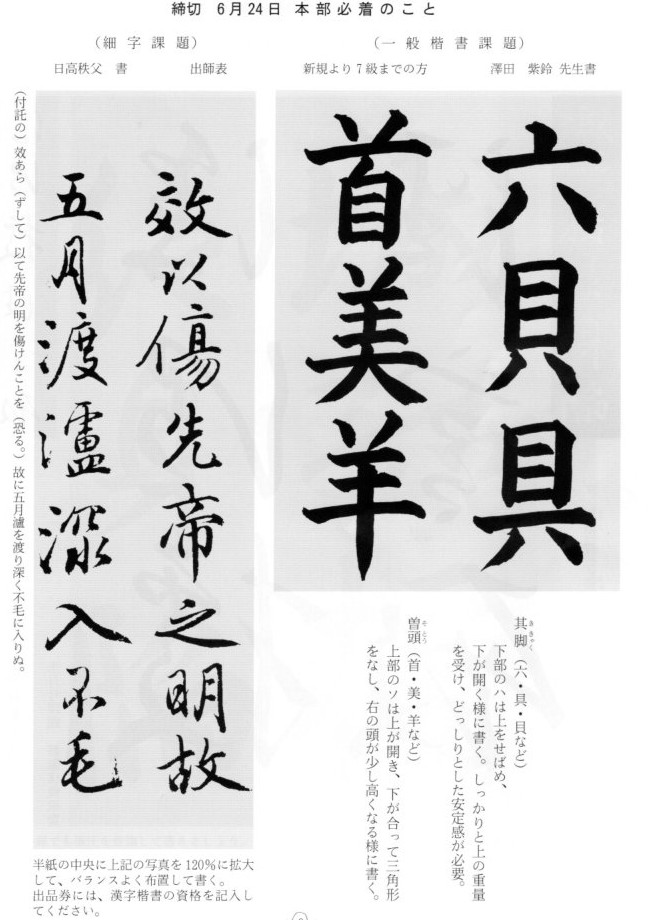 締切　6月24日 本部必着のこと
（一般楷書課題）
新規より7級までの方　澤田　紫鈴 先生書
六貝具
首美羊
其脚（六・具・貝など）
ききゃく
下部のハは上をせばめ、
下が開く様に書く。しっかりと上の重量
を受け、どっしりとした安定感が必要。
曽頭（首・美・羊など）
そとう
上部のソは上が開き、下が合って三角形
をなし、右の頭が少し高くなる様に書く。
（細字課題）
日高秩父　書　出師表
效以傷先帝之明故
五月渡瀘深入不毛
（付託の）效あら（ずして）以て先帝の明を傷けんことを（恐る。）故に五月瀘を渡り深く不毛に入りぬ。
半紙の中央に上記の写真を120％に拡大
して、バランスよく布置して書く。
出品券には、漢字楷書の資格を記入し
てください。